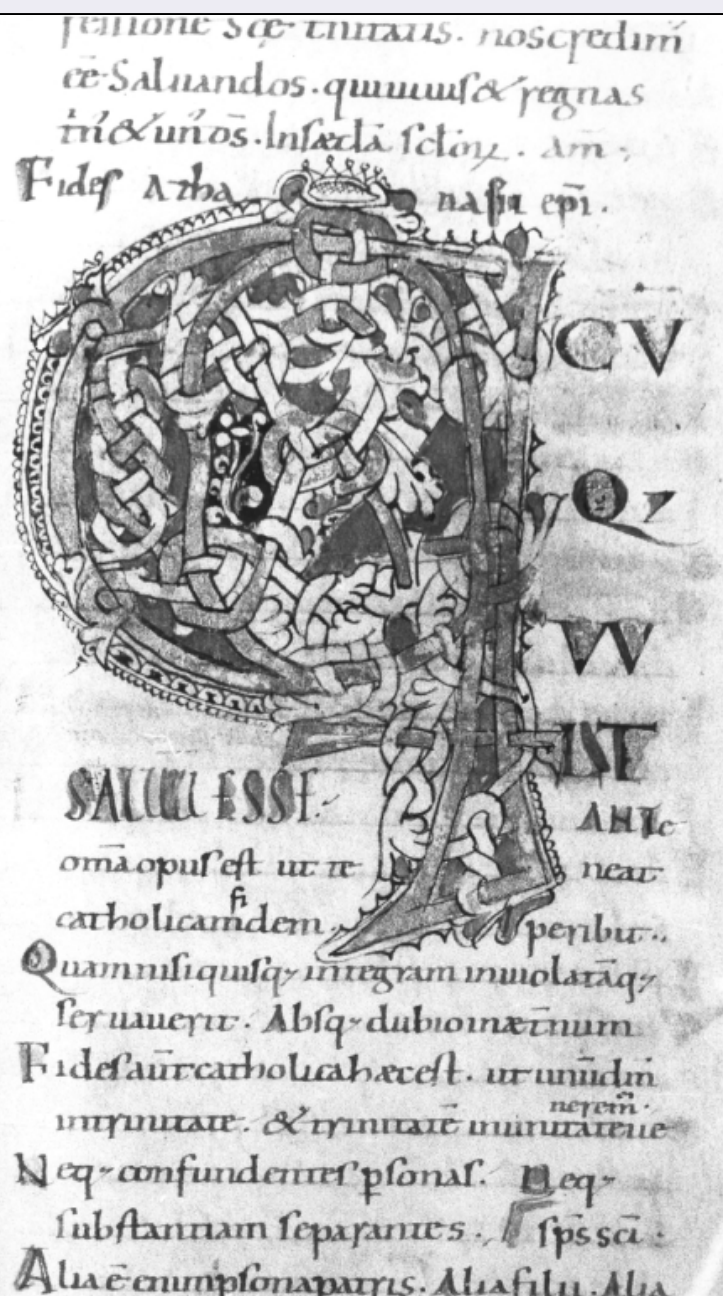 fessione scę trinitatis. nos credim̄
eē saluandos. qui uiuis & regnas
trin̄ & un̄ ds̄. In sæcl̄a sclōꝝ. am̄.
Fides Athanasii ep̄i.
QUICŪ
Q;
UUL
UULT
SALUUS ESSE.
ANTE
om̄a opus est ut teneat
catholicam fidem.
peribit..
Quam nisi quisq; integram inuiolatāq;
seruauerit. Absq; dubio in æt̄num
Fides aūt catholica hæc est. ut unū dm̄
in trinitate. & trinitatē in unitate ue
nerem̄.
Neq; confundentes p̱sonas. neq;
substantiam separantes. sps̄ sc̄i.
Alia ē enim p̱sona patris. Alia filii. Alia